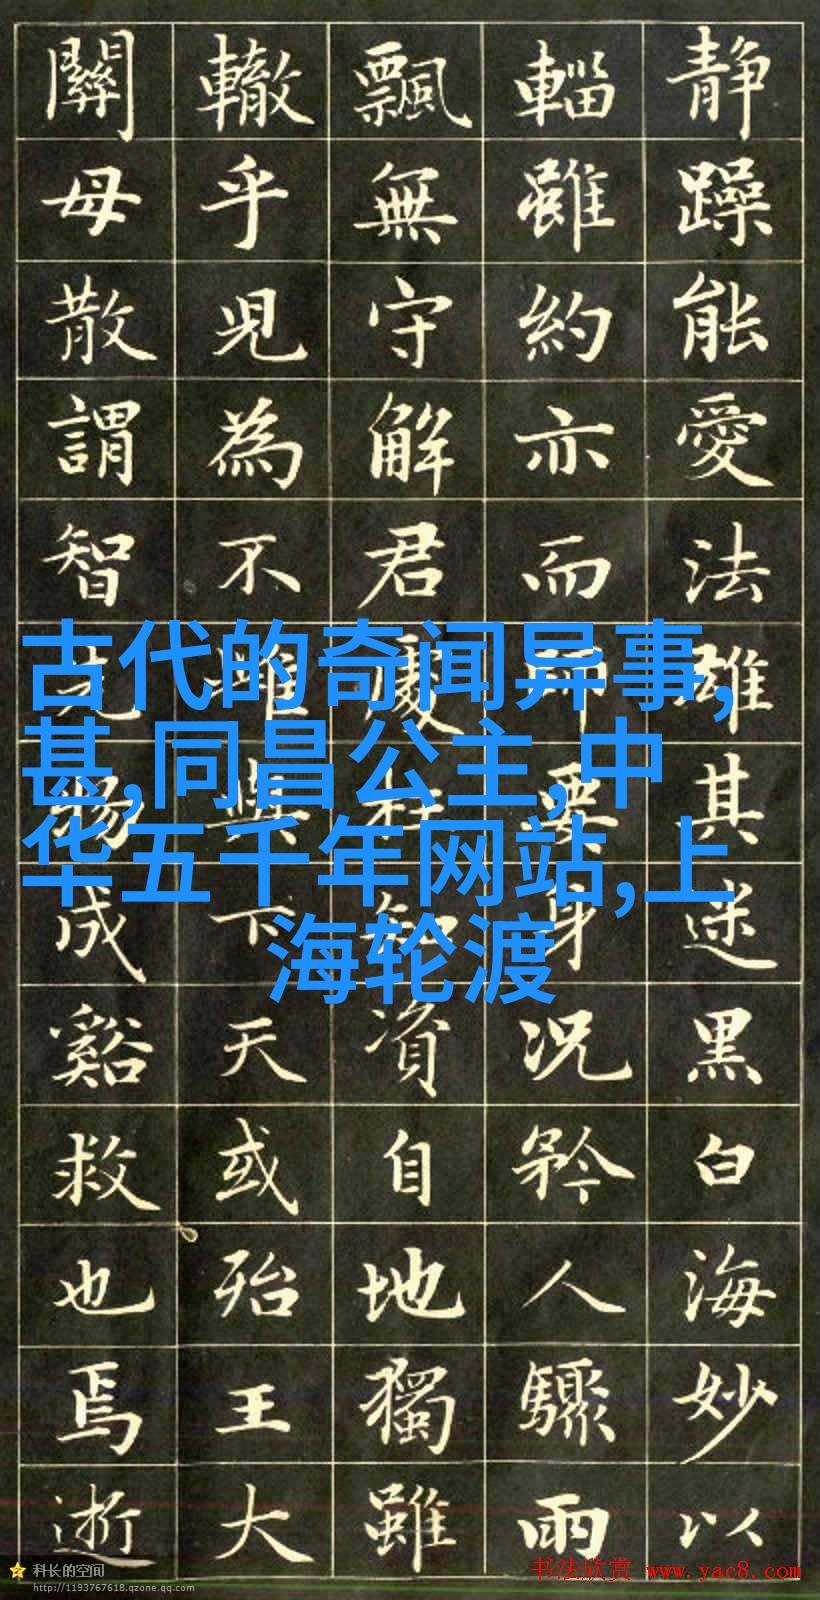 静躁能愛法其迷黑白海妙以
輜雖約亦而要身況矜人驟雨
飄無守解君知資自地獨雖
轍乎児為不下天或殆王大
關母散謂智成谿救也焉逝
古代的奇闻异事,
甚,同昌公主,中
华五千年网站,上
海轮渡
科长的空间
http://1193767618.qzone.qq.com
书法欣赏 www.yac8.com